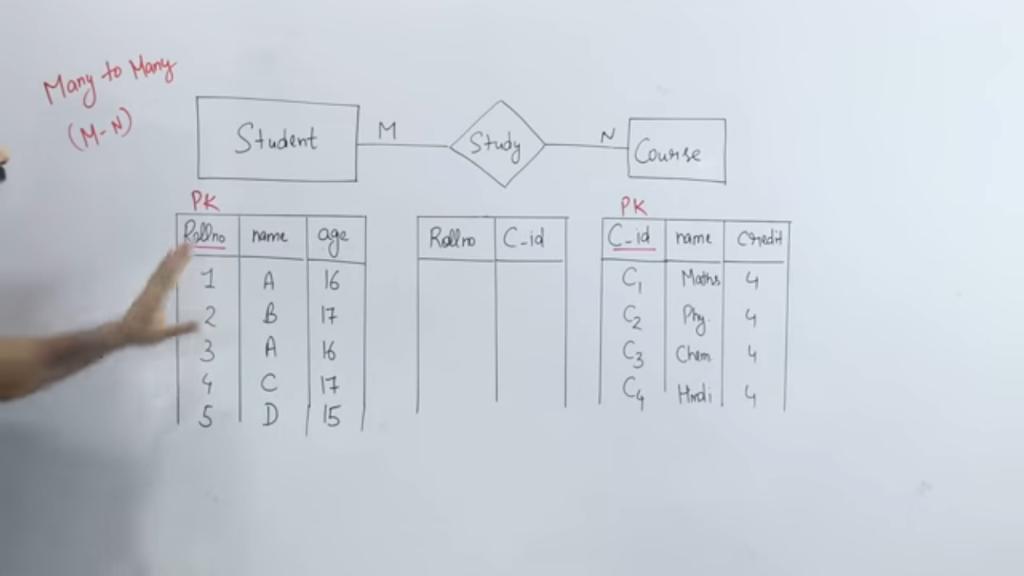 Many to Many
(M-N)
Student
M
Study
N
Course
PK
Rollno name age
1 A 16
2 B 17
3 A 16
4 C 17
5 D 15
Rollno C-id
PK
C-id name Credit
C1 Maths 4
C2 Phy. 4
C3 Chem 4
C4 Hindi 4